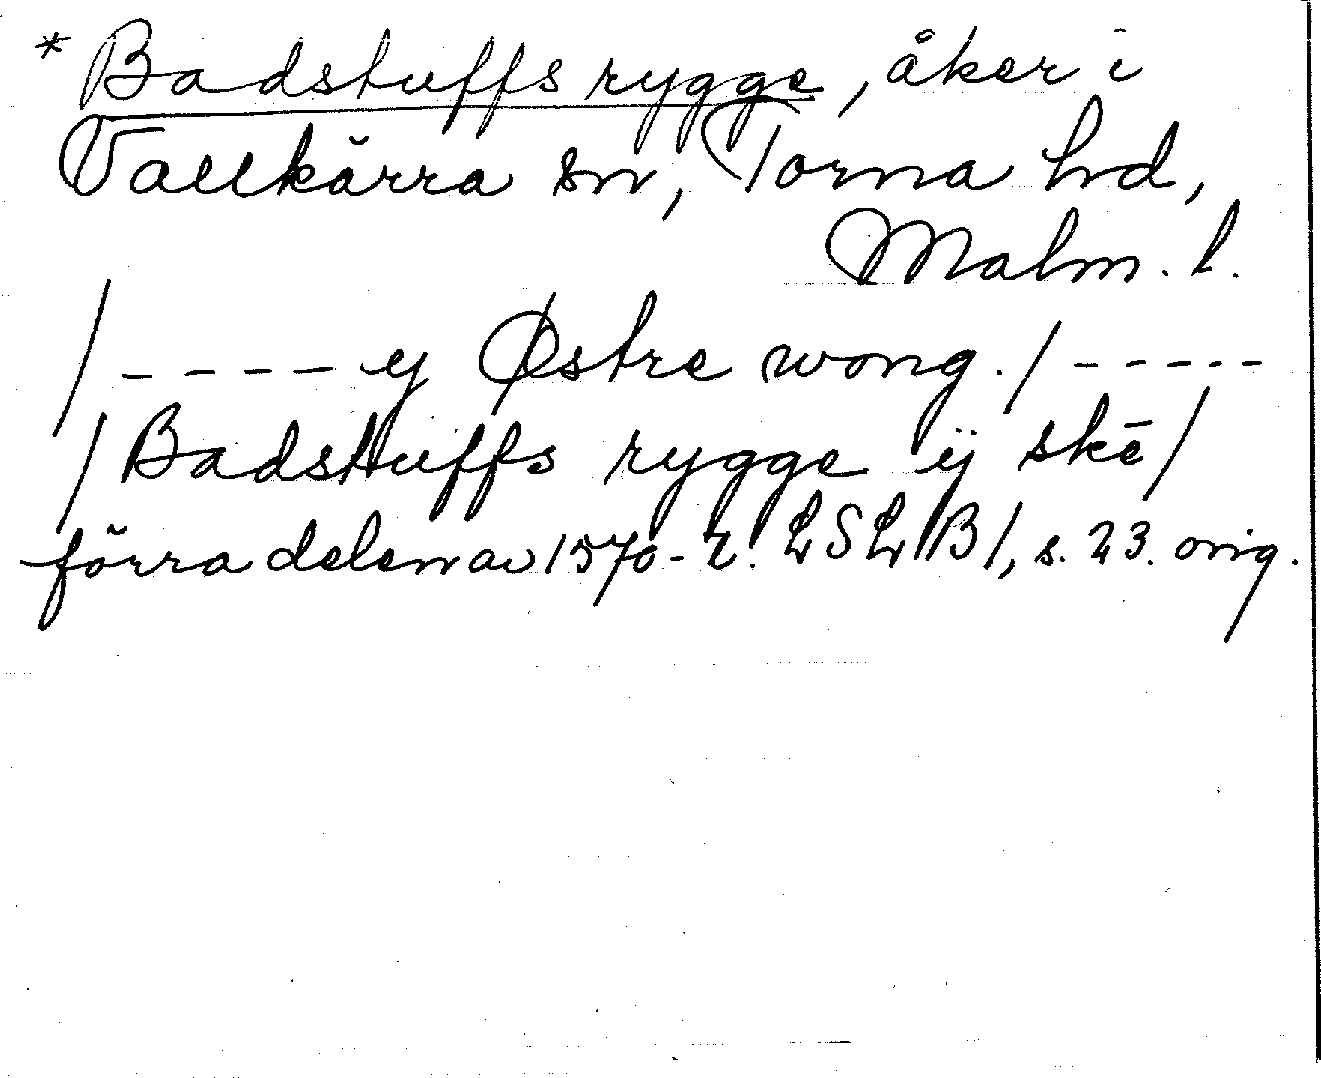 * Badstuffs rygge, åker i
Vallkärra sn, Torna hd,
Malm. l.
/ - - - - ey Østre wong. / - - - - -
/ Badstuffs rygge ÿ skē /
förra delen av 1570-t. LSLB 1, s. 23. orig.